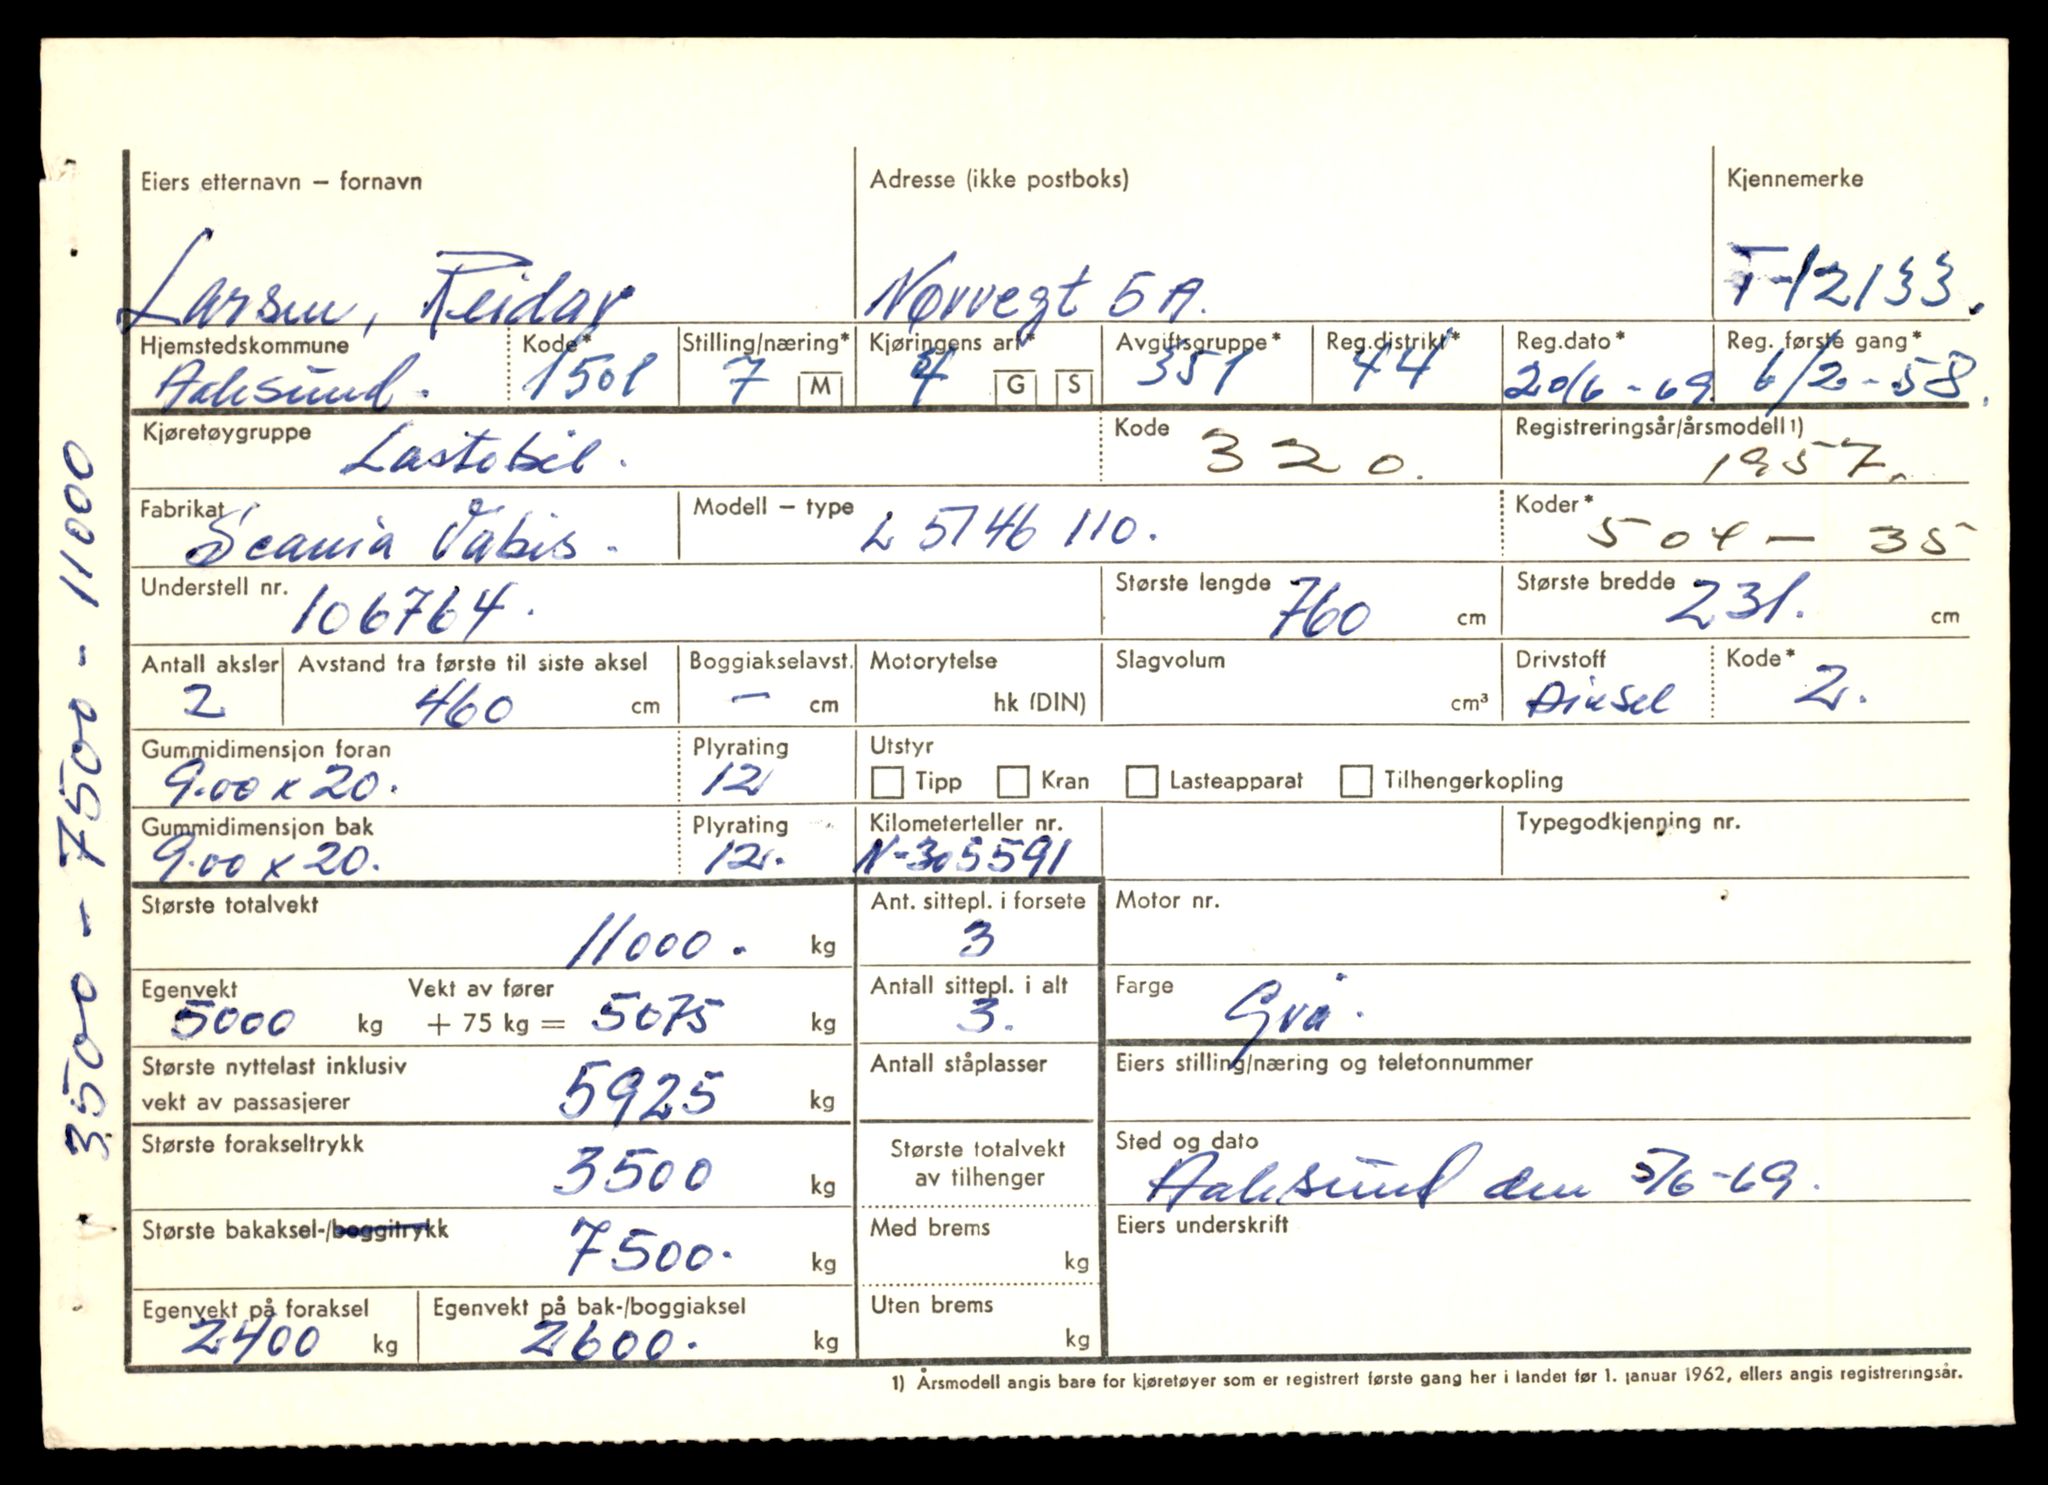 Eiers etternavn – fornavn Adresse (ikke postboks) Kjennemerke
Larsen, Reidar Norvegt 5 A. T-12133.
Hjemstedskommune Kode* Stilling/næring* Kjøringens art* Avgiftsgruppe* Reg.distrikt* Reg.dato* Reg. første gang*
Aalesund. 1501 7 M 4 G S 351 44 20/6-69. 6/2-58.
Kjøretøygruppe Lastebil. Kode 320. Registreringsår/årsmodell1) 1957.
Fabrikat Scania Vabis. Modell – type L 5146 110. Koder* 504 – 35
Understell nr. 106764. Største lengde 760 cm Største bredde 231. cm
Antall aksler Avstand fra første til siste aksel Boggiakselavst. Motorytelse Slagvolum Drivstoff Kode*
2 460 cm – cm hk (DIN) cm³ Diesel 2.
Gummidimensjon foran Plyrating Utstyr
9.00 x 20. 12 Tipp Kran Lasteapparat Tilhengerkopling
Gummidimensjon bak Plyrating Kilometerteller nr. Typegodkjenning nr.
9.00 x 20. 12. N-305591
Største totalvekt 11000. kg Ant. sittepl. i forsete 3 Motor nr.
Egenvekt Vekt av fører Antall sittepl. i alt Farge
5000 kg + 75 kg = 5075 kg 3. Grå.
Største nyttelast inklusiv Antall ståplasser Eiers stilling/næring og telefonnummer
vekt av passasjerer 5925 kg
Største forakseltrykk 3500 kg Største totalvekt Sted og dato
av tilhenger Aalesund den 5/6-69.
Største bakaksel-/boggitrykk 7500. kg Med brems kg Eiers underskrift
Egenvekt på foraksel Egenvekt på bak-/boggiaksel Uten brems
2400 kg 2600. kg kg
1) Årsmodell angis bare for kjøretøyer som er registrert første gang her i landet før 1. januar 1962, ellers angis registreringsår.
3500 – 7500 - 11000